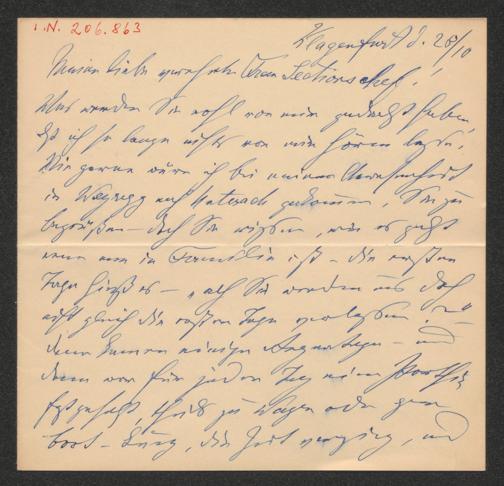 I.N. 206.863
Klagenfurt d. 28/10
Meine liebe verehrte Frau Sectionschef!
Was werden Sie wohl von mir gedacht haben,
daß ich so lange nichts von mir hören ließ.
Wie gerne wäre ich bei meiner Anwesenheit
in Weyregg nach Unterach gekommen, Sie zu
begrüßen – doch Sie wissen, wie es geht
wenn man in Familie ist – die ersten
Tage hieß es – „ach Sie werden uns doch
nicht gleich die ersten Tage verlassen" –
dann kamen einige Regentage – und
dann war für jeden Tag eine Parthie
festgesetzt, theils zu Wagen oder per
Boot – kurz, die Zeit verging, und